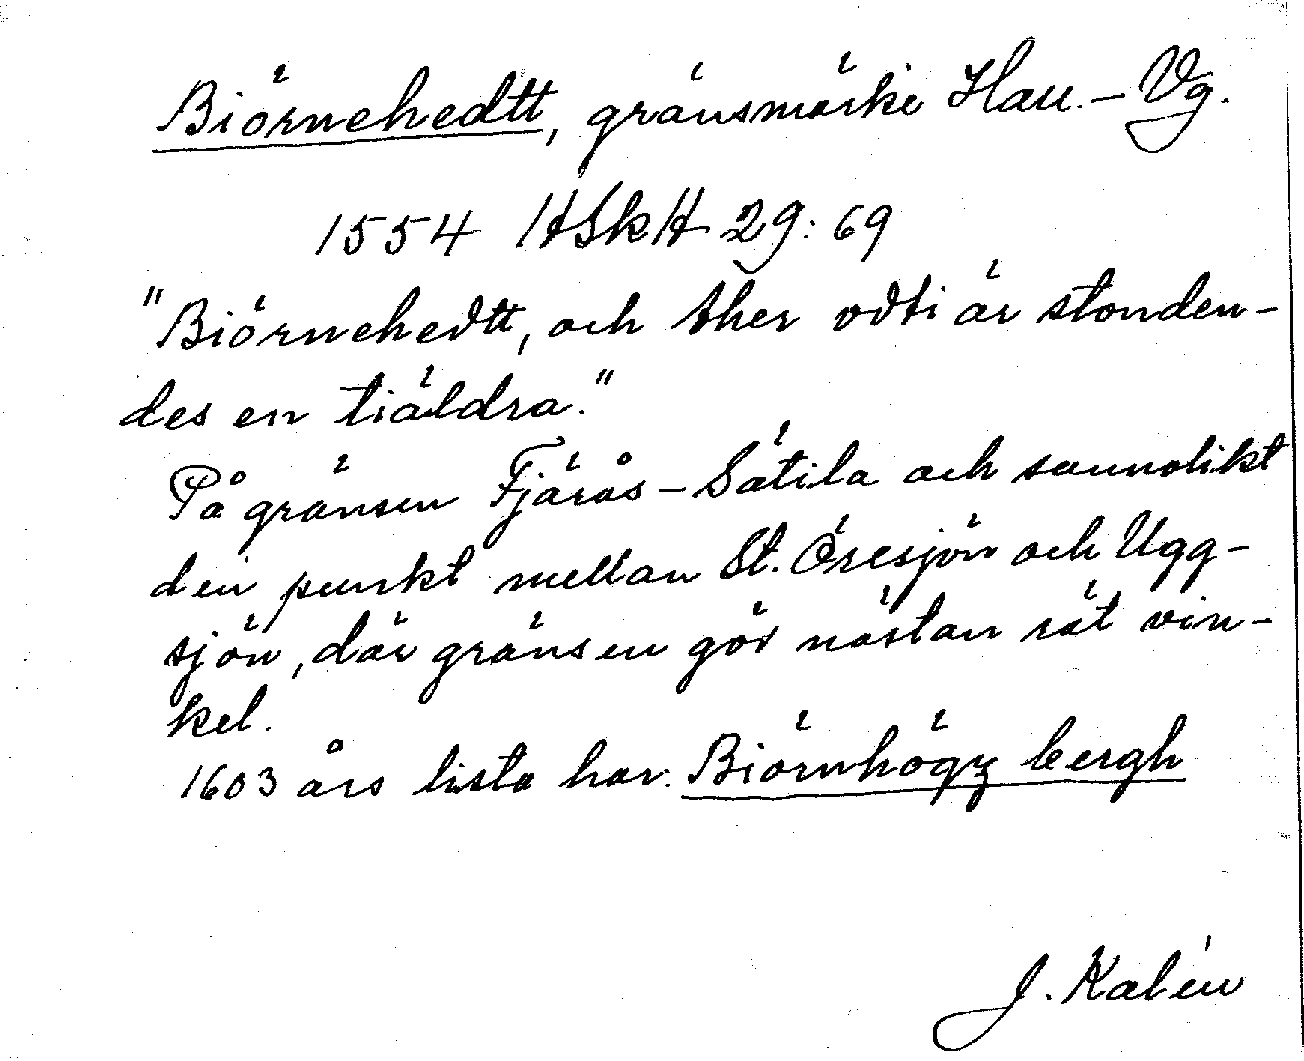 Biörnehedtt, gränsmärke Hall.– Vg.
1554 HSkH 29: 69
"Biörnehedtt, och ther vdti är stonden-
des en tiäldra."
På gränsen Fjärås – Sätila och sannolikt
den punkt mellan St. Öresjön och Ugg-
sjön, där gränsen gör nästan rät vin-
kel.
1603 års lista har: Biörnhögz bergh
J. Kalén